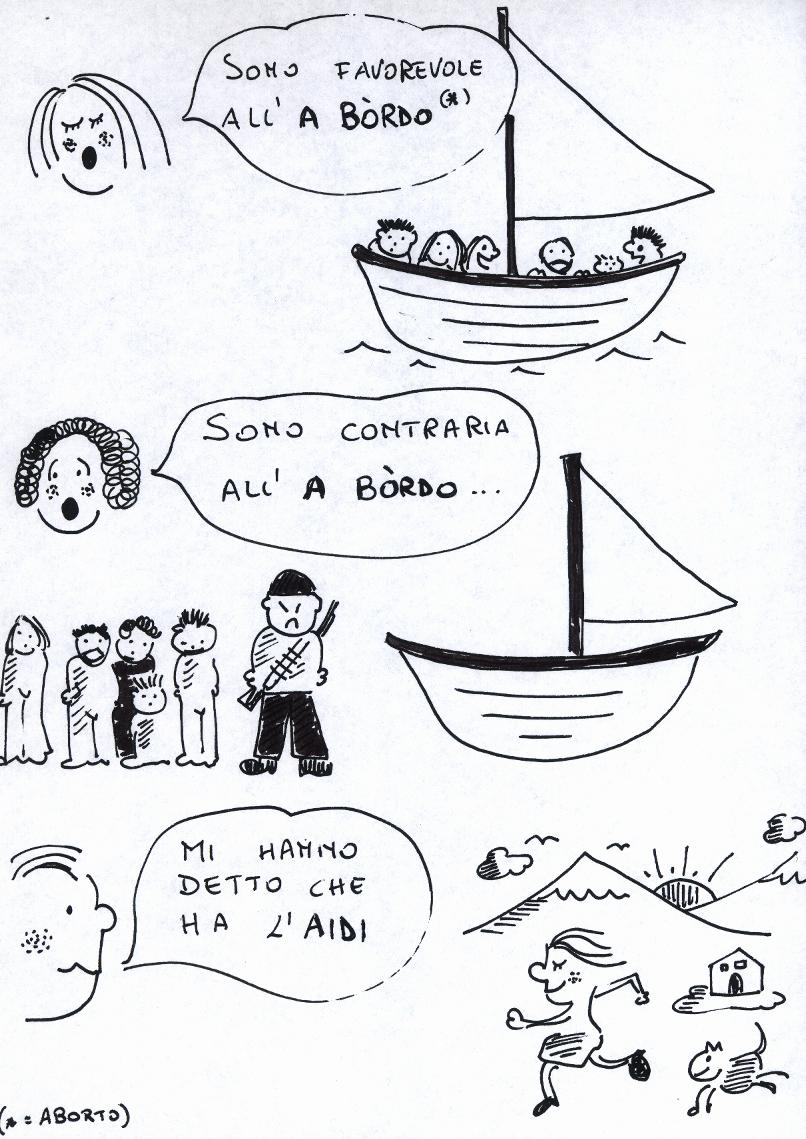 SONO FAVOREVOLE
ALL' A BÒRDO (*)
SONO CONTRARIA
ALL' A BÒRDO...
MI HANNO
DETTO CHE
HA L'AIDI
(* = ABORTO)